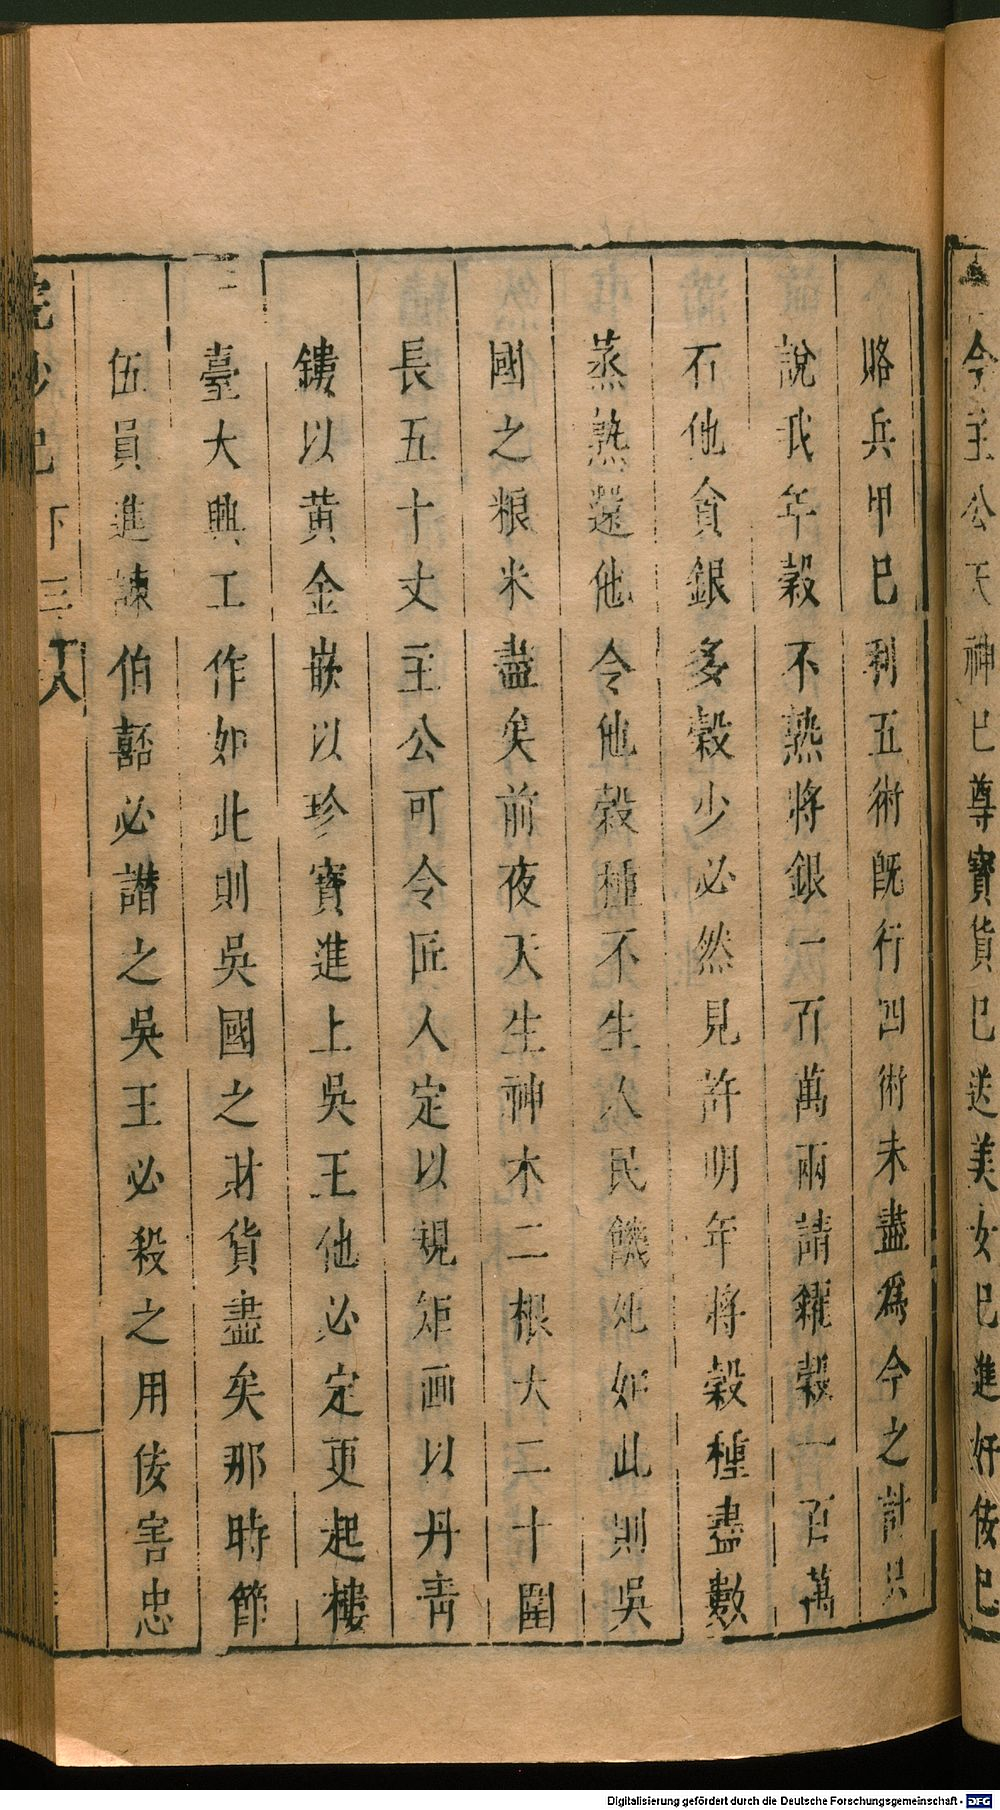 今主公天神已尊寶貨已送美女已進好佞已
賂兵甲已利五術既行四術未盡爲今之計只
說我年穀不熟將銀一百萬兩請糴穀一百萬
石他貪銀多穀少必然見許明年將穀種盡數
蒸熟還他令他穀種不生人民饑死如此則吳
國之粮米盡矣前夜天生神木二根大二十圍
長五十丈主公可令匠人定以規矩画以丹青
鏤以黄金嵌以珍寶進上吳王他必定更起樓
臺大興工作如此則吳國之財貨盡矣那時節
伍員進諫伯嚭必譖之吳王必殺之用佞害忠
浣紗記 下 三 八
Digitalisierung gefördert durch die Deutsche Forschungsgemeinschaft - DFG